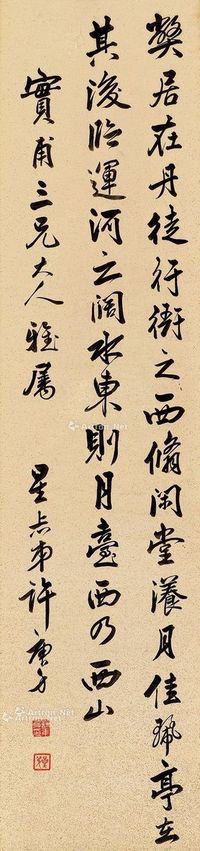 弊居在丹徒行衙之西脩閑堂漾月佳珮亭在
其後臨運河之闊水東則月臺西乃西山
寶甫三兄大人雅屬
星台弟許庚身